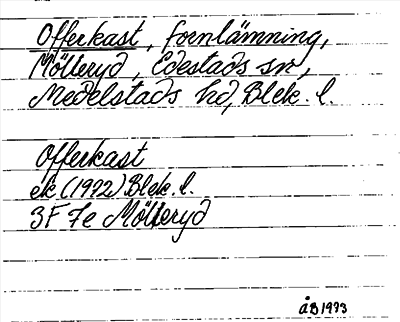 Offerkast, fornlämning,
Mölleryd, Edestads sn,
Medelstads hd, Blek. l.
Offerkast
ek (1972) Blek. l.
3F 7e Mölleryd
ÅB 1973